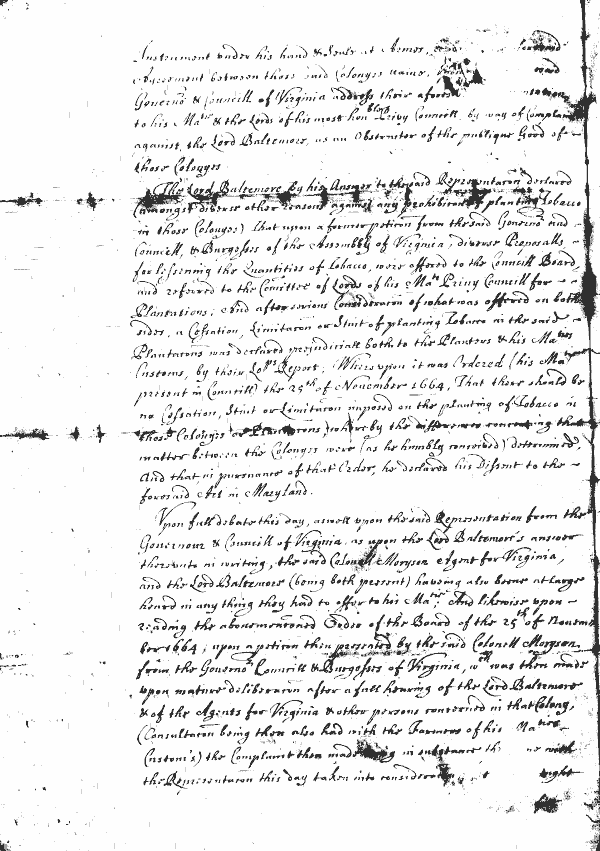 Instrument under his hand & Seale at Armes,
Agreement between those said Colonyes name,
Governor & Councill of Virginia address their aforesd
to his Matie & the Lords of his most honble Privy Councill, by way of Complaint
against, the Lord Baltemore, as an Obstructor of the publique Good of
those Colonyes
The Lord Baltemore by his Answer to the said Representacon declared
(amongst diverse other reasons against any prohibicon of planting Tobacco
in those Colonyes) That upon a former peticon from the said Governor and
Councill, & Burgesses of the Assembly of Virginia, diverse Proposalls,
for lessening the Quantities of Tobacco, were offered to the Councill Board,
and referred to the Comittee of Lords of his Maties Privy Councill for
Plantations, And after serious Consideracon of what was offered on both
sides, a Cessation, Limitacon or Stint of planting Tobacco in the said
Plantacons was declared prejudiciall both to the Planters & his Maties
Customs, by their Lopps Report, Whereupon it was Ordered (his Matie
present in Councill) the 25th of November 1664, That there should be
no Cessation, Stint or Limitacon imposed on the planting of Tobacco in
those Colonyes or Plantacons) whereby the differences concerning that
matter between the Colonyes were (as he humbly conceived) determined,
And that in pursuance of that Order, he declared his Dissent to the
foresaid Act in Maryland.
Upon full debate this day, aswell upon the said Representation from the
Governour & Councill of Virginia, as upon the Lord Baltemore's answer
thereunto in writing, the said Colonell Moryson Agent for Virginia,
and the Lord Baltemore (being both present) haveing also beene at large
heard in any thing they had to offer to his Matie; And likewise upon
reading the abovementioned Order of the Board of the 25th of Novem
ber 1664, upon a peticon then presented by the said Colonell Moryson
from the Governor Councill & Burgesses of Virginia, wch was then made
upon mature deliberacon after a full hearing of the Lord Baltemore
& of the Agents for Virginia & other persons concerned in that Colony,
(Consultacon being then also had with the Farmers of his Maties
Custom's) the Complaint then made being in substance the ne with
the Representacon this day taken into consideracon